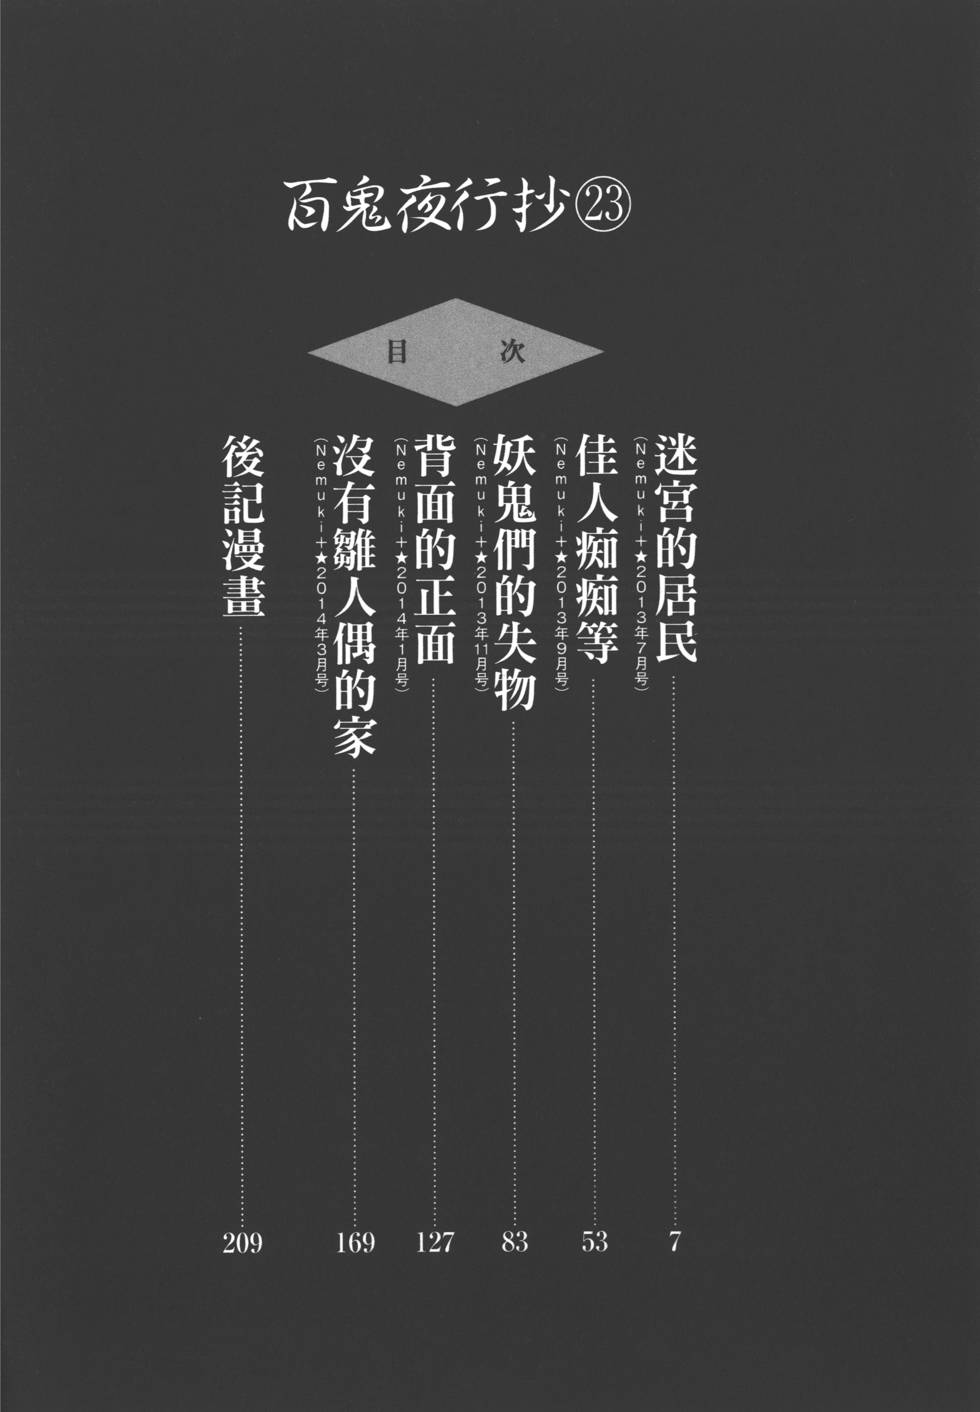 百鬼夜行抄㉓
目次
迷宮的居民
(Nemuki+★2013年7月号)
7
佳人痴痴等
(Nemuki+★2013年9月号)
53
妖鬼們的失物
(Nemuki+★2013年11月号)
83
背面的正面
(Nemuki+★2014年1月号)
127
沒有雛人偶的家
(Nemuki+★2014年3月号)
169
後記漫畫
209